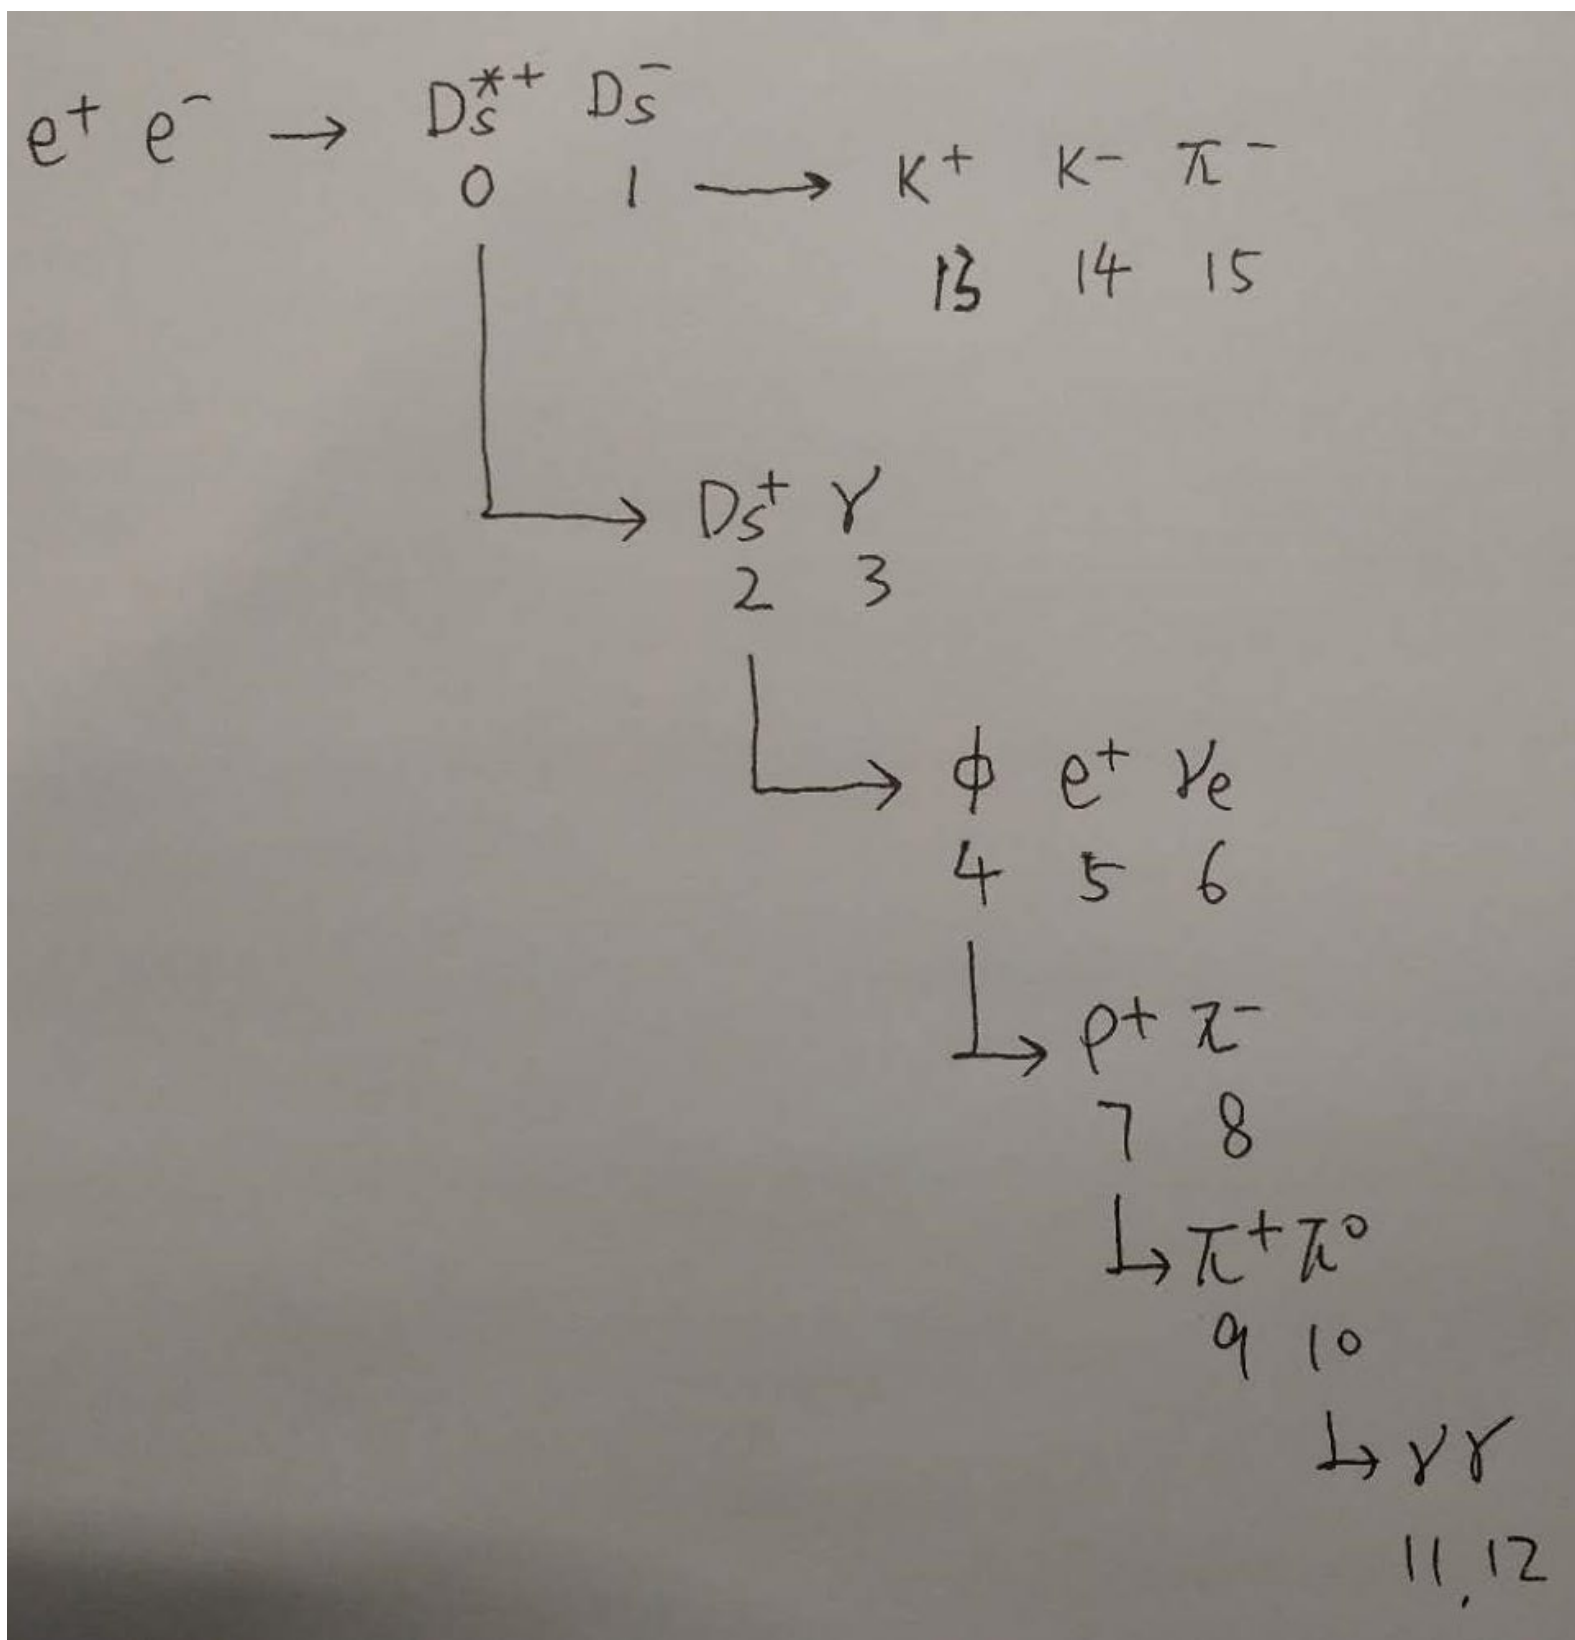 e⁺ e⁻ → Ds*⁺ Ds⁻
0 1 → K⁺ K⁻ π⁻
13 14 15
Ds⁺ γ
2 3
ϕ e⁺ νe
4 5 6
ρ⁺ π⁻
7 8
π⁺ π⁰
9 10
γγ
11, 12